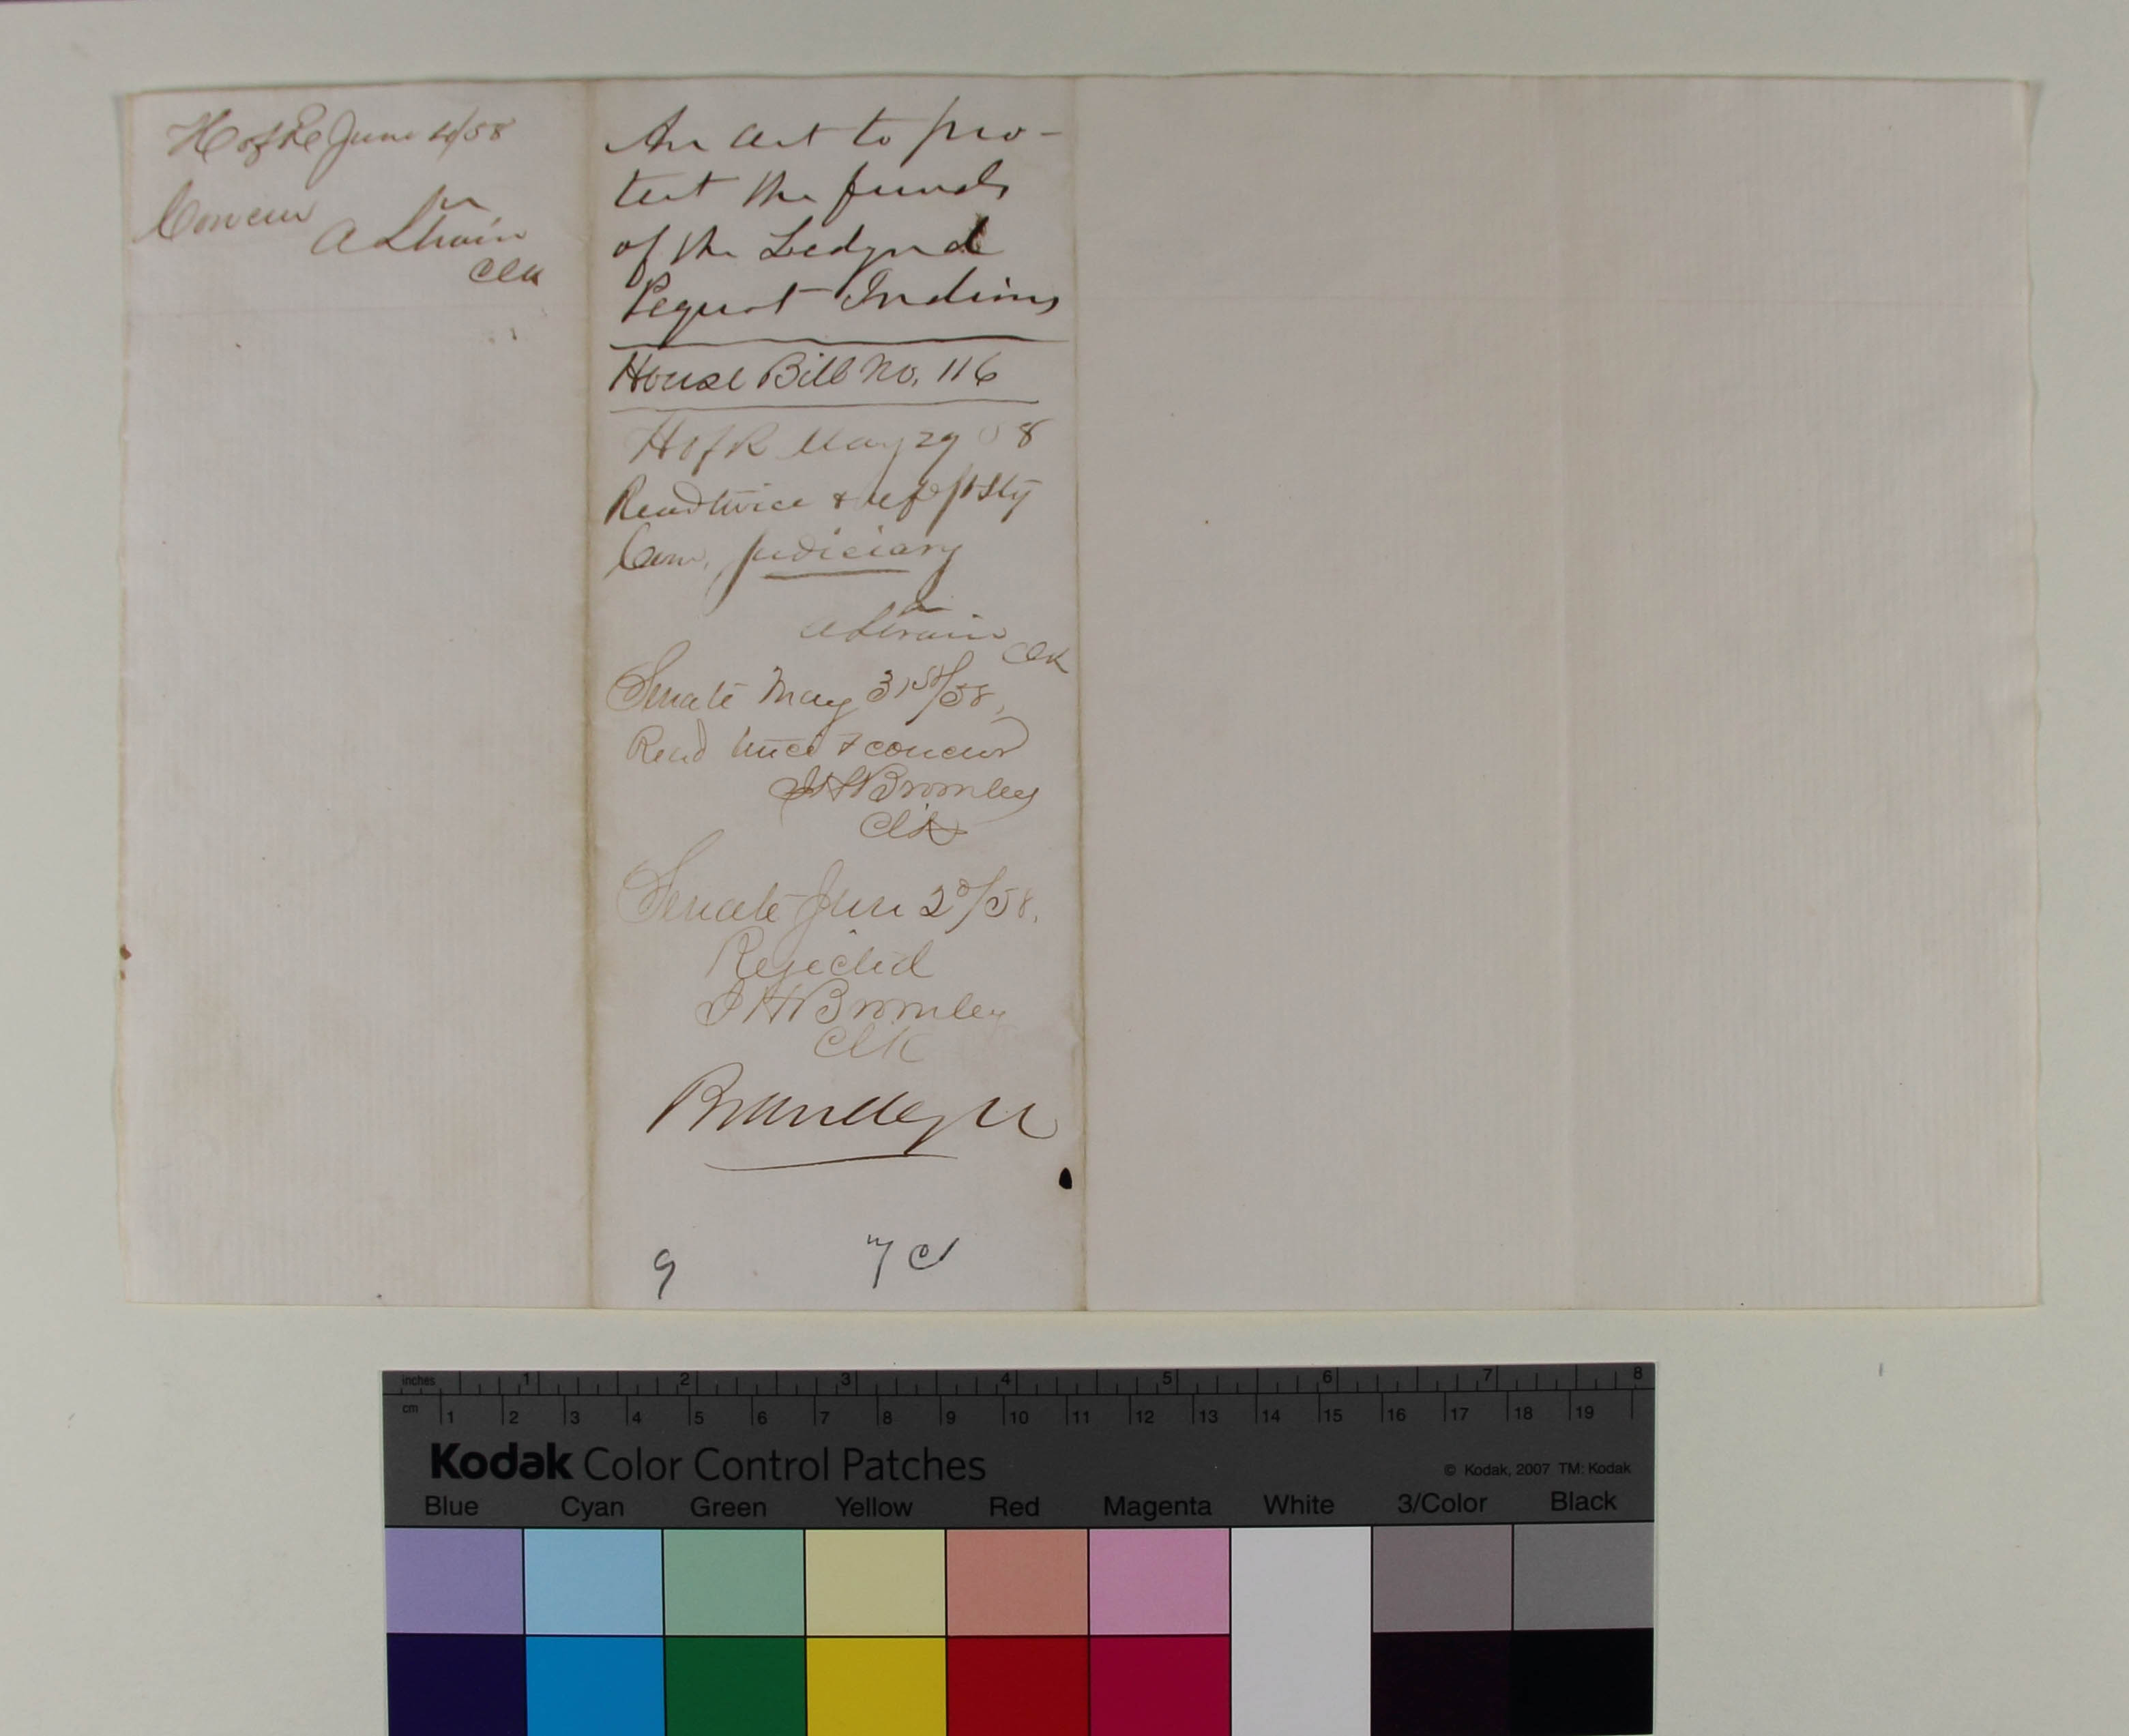 H of Re June 4/58
Concur
A Strain
Clk
An act to pro-
tect the funds
of the Ledyard
Pequot Indians
House Bill No. 116
H of R May 29 58
Read twice & ref
Com. Judiciary
A Strain
Clk
Senate May 31st/58,
Read twice & concur
I H Bromley
Clk
Senate June 2d/58.
Rejected
I H Bromley
Clk
Brandegee
9
7
inches 1 2 3 4 5 6 7 8
cm 1 2 3 4 5 6 7 8 9 10 11 12 13 14 15 16 17 18 19
Kodak Color Control Patches
© Kodak, 2007 TM: Kodak
Blue Cyan Green Yellow Red Magenta White 3/Color Black